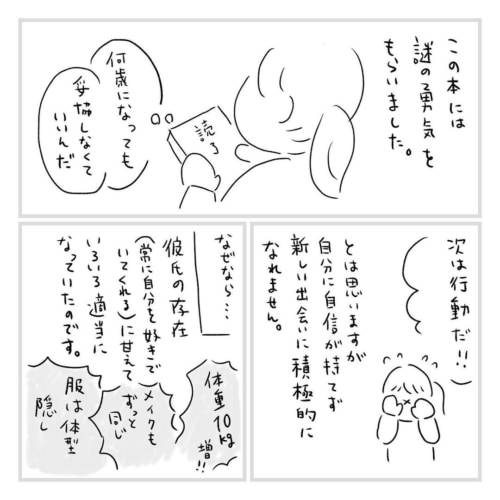 この本には
謎の勇気を
もらいました。
読了
何歳になっても
妥協しなくて
いいんだ
次は行動だ!!
とは思いますが
自分に自信が持てず
新しい出会いに積極的に
なれません。
なぜなら…
彼氏の存在
(常に自分を好きで
いてくれる)に甘えて
いろいろ適当に
なっていたのです。
体重10kg
増!!
メイクも
ずっと
同じ
服は体型
隠し